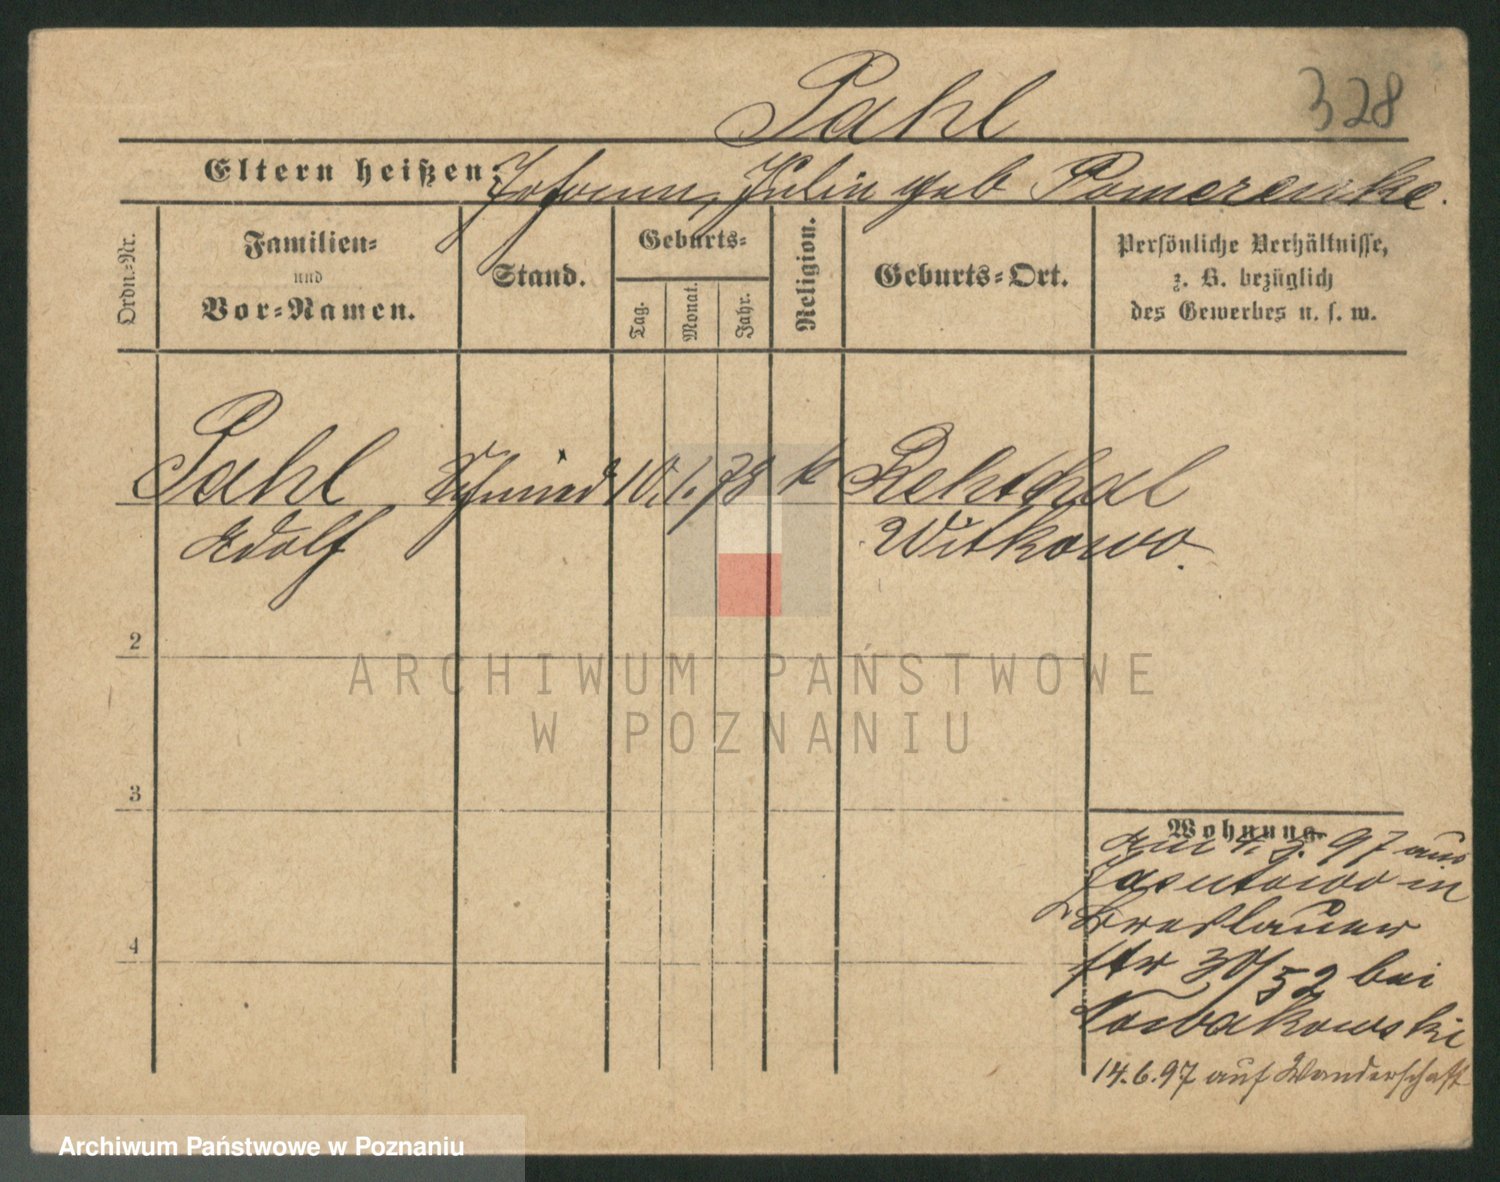 Pahl
328
Eltern heißen: Johann, Julie geb Pomerenke.
Ordn.-Nr.
Familien-
und
Vor-Namen.
Stand.
Geburts-
Tag.
Monat.
Jahr.
Religion.
Geburts-Ort.
Persönliche Verhältnisse,
z. B. bezüglich
des Gewerbes u. s. w.
Pahl Schmied 10. 1. 78 k Rehthal
Adolf Witkowo.
2
3
4
Wohnung.
am 4. 3. 97 aus
in
Breslauer
str 30/32 bei
Nowakowski
14.6.97 auf Wanderschaft
ARCHIWUM PAŃSTWOWE
W POZNANIU
Archiwum Państwowe w Poznaniu